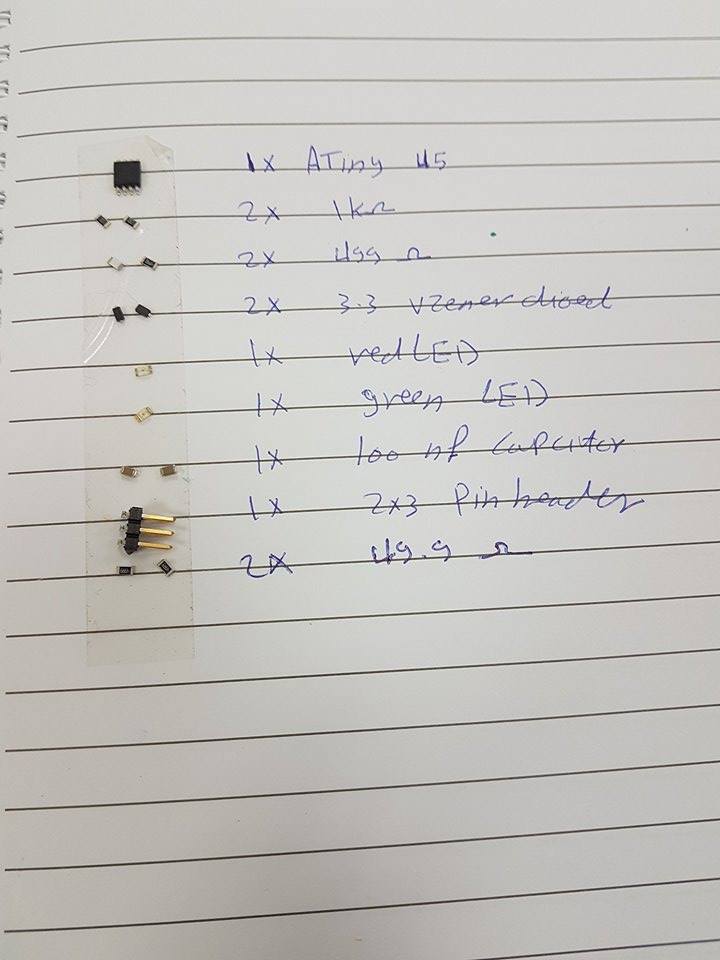 1x ATiny 45
2x 1kΩ
2x 499 Ω
2x 3.3 vzener dioed
1x red LED
1x green LED
1x 100 nf Capcitor
1x 2x3 Pin header
2x 49.9 Ω